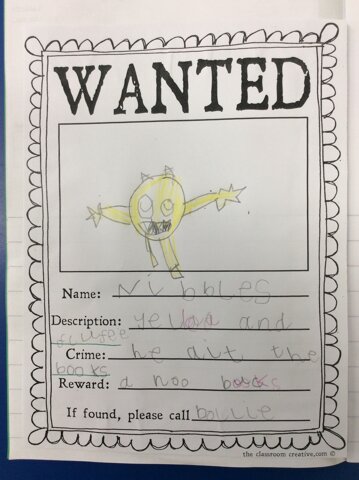 WANTED
Name: Nibbles
Description: yellaa and
flufee
Crime: he ait the
books
Reward: a noo books
If found, please call
the classroom creative.com ©